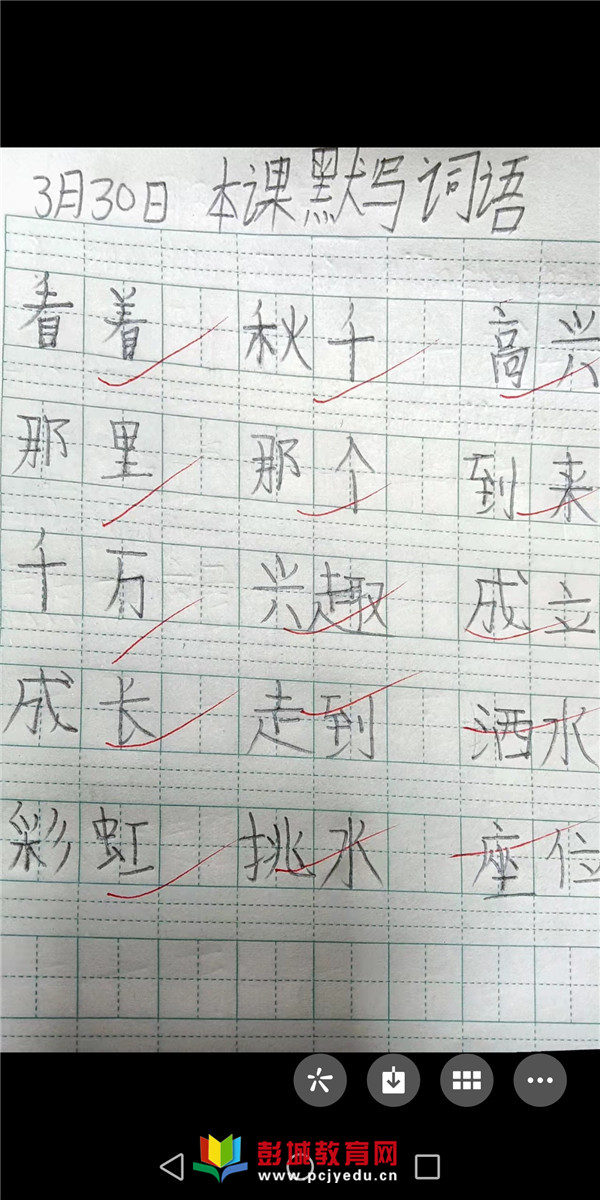 3月30日 本课默写词语
看着 秋千 高兴
那里 那个 到来
千万 兴趣 成立
成长 走到 洒水
彩虹 挑水 座位
彭城教育网
www.pcjyedu.cn